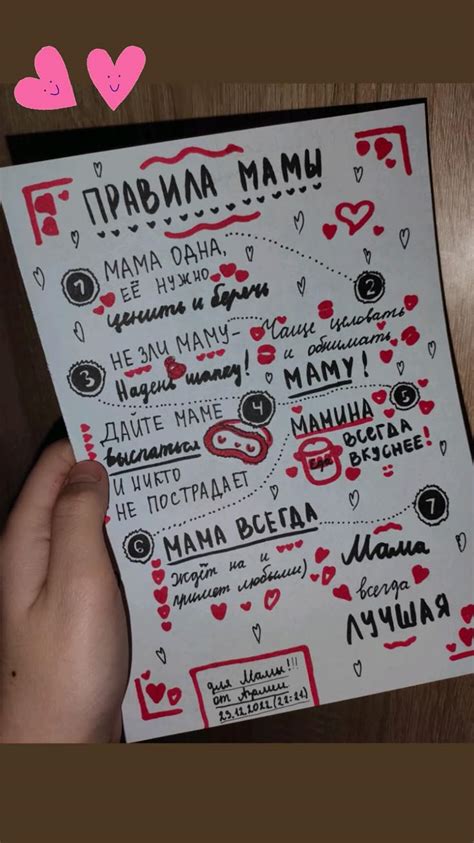 ПРАВИЛА МАМЫ
1
МАМА ОДНА,
ЕЁ НУЖНО
ценить и беречь
2
Чаще целовать
и обнимать
МАМУ!
3
НЕ ЗЛИ МАМУ-
Надень шапку!
4
ДАЙТЕ МАМЕ
выспаться
И НИКТО
НЕ ПОСТРАДАЕТ
5
МАМИНА
еда
ВСЕГДА
ВКУСНЕЕ!
6
МАМА ВСЕГДА
ждёт на и
примет любыми)
7
Мама
всегда
ЛУЧШАЯ
для Мамы!!!
от
23.12.2022(22:21)